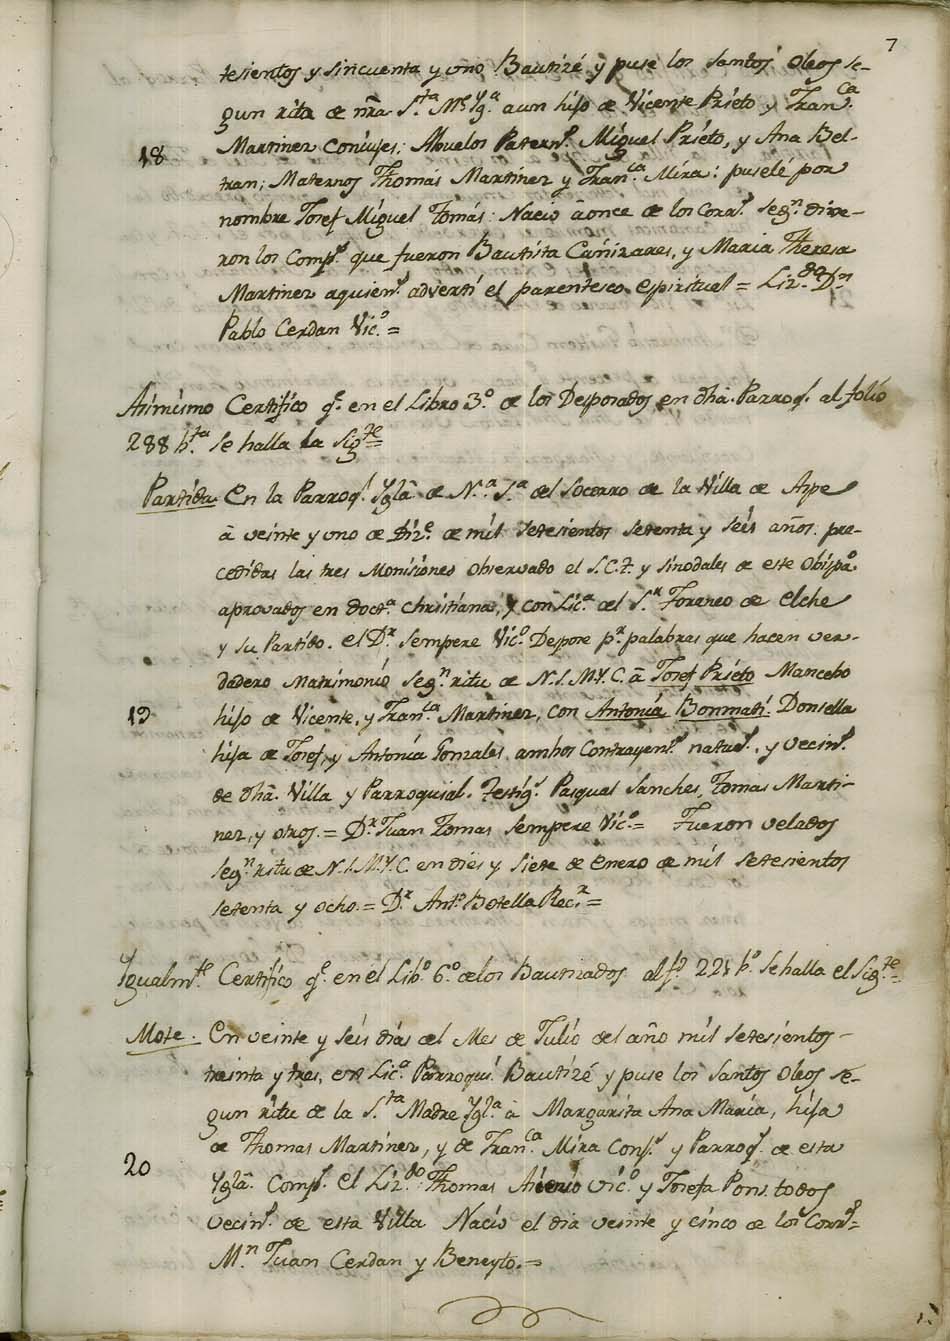 7
tesientos y sincuenta y uno Bautizé y puse los Santos Oleos se-
gun rita de nra Sta Me Yga aun hijo de Vicente Prieto y Franca
Martinez Coniuges: Abuelos Patern.s Miguel Prieto, y Ana Bel-
18
tran; Maternos Thomás Martinez y Franca Mira: puselé por
nombre Josef Miguel Tomás: Nacio á once de los Corr.s Segn dixe-
ron los Comp.s que fueron Bautista Cañizares, y Maria Theresa
Martinez aquien.s adverti el parentesco espiritual = Lizdo Dn
Pablo Cerdan Vico =
Asimismo Certifico q.e en el Libro 3o de los Desposados en dha. Parroq.l al folio
288 bta se halla la Sigte =
Partida En la Parroq.l Yglã de Na Sa del Socorro de la Villa de Aspe
á veinte y uno de Dize de mil setesientos setenta y seis años. pre-
cedidas las tres Monisiones observado el S.C.T. y sinodales de este Obispdo
aprovados en Docta Christiana, y con Lica del Sr Foraneo de Elche
y su Partido. el Dr Sempere Vico Despose pr palabras que hacen ver-
dadero Matrimonio Segn ritu de N.S.M.Y.C. á Josef Prieto Mancebo
19
hijo de Vicente, y Franca Martinez, con Antonia Bonmatí Donsella
hija de Josef, y Antonia Gonzales. ambos Contrayen.s natur.s y vecin.s
de dhã. Villa y Parroquial. Testig.s Pasqual Sanches, Tomas Marti-
nez, y otros. = Dr Juan Tomas Sempere Vico = Fueron velados
Segn ritu de N.S.M.Y.C. en dies y siete de Enero de mil setesientos
setenta y ocho. = Dr Anto Botella Recr =
Ygualmte Certifico q.e en el Libo 6o delos Bautizados al fo 221 bo se halla el Sigte =
Mote. En veinte y séis dias del Mes de Julio del año mil setesientos
treinta y tres, Lica Parroqui. Bautizé y puse los Santos Oleos se-
gun ritu de la Sta Madre Ygla à Margarita Ana Maria, hija
de Thomas Martinez, y de Franca Mira Cons.s y Parroq.s de esta
20
Yglã. Comp.s el Lizdo Thomas vico y Josefa Pons. todos
vecin.s de esta Villa Nacio el dia veinte y cinco de los Corr.s =
Mn Juan Cerdan y Beneyto. =